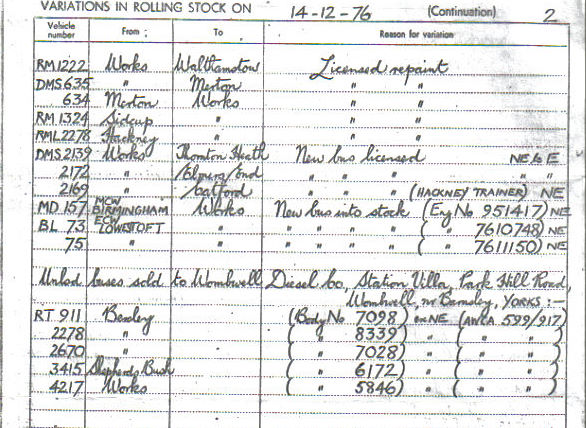 VARIATIONS IN ROLLING STOCK ON 14-12-76 (Continuation) 2
Vehicle number From To Reason for variation
RM1222 Works Walthamstow Licensed repaint
DMS 635 " Merton " "
634 Merton Works " "
RM 1324 Sidcup " " "
RML 2278 Hackney " " "
DMS 2139 Works Thornton Heath New bus licensed NE & E
2172 " " " " " "
2169 " Catford " " " (HACKNEY TRAINER) NE
MD 157 MCW BIRMINGHAM Works New bus into stock (Eng No 951417) NE
BL 73 ECW LOWESTOFT " " " " ( " 7610748) NE
75 " " " " " " ( " 7611150) NE
Unlcd buses sold to Wombwell Diesel Co, Station Villa, Park Hill Road,
Wombwell, nr Barnsley, YORKS :-
RT 911 Bexley (Body No 7098) NE (AWLA 599/917)
2278 " ( " 8339) " ( " " )
2670 " ( " 7028) " ( " " )
3415 Shepherds Bush ( " 6172) " ( " " )
4217 Works ( " 5846) " ( " " )